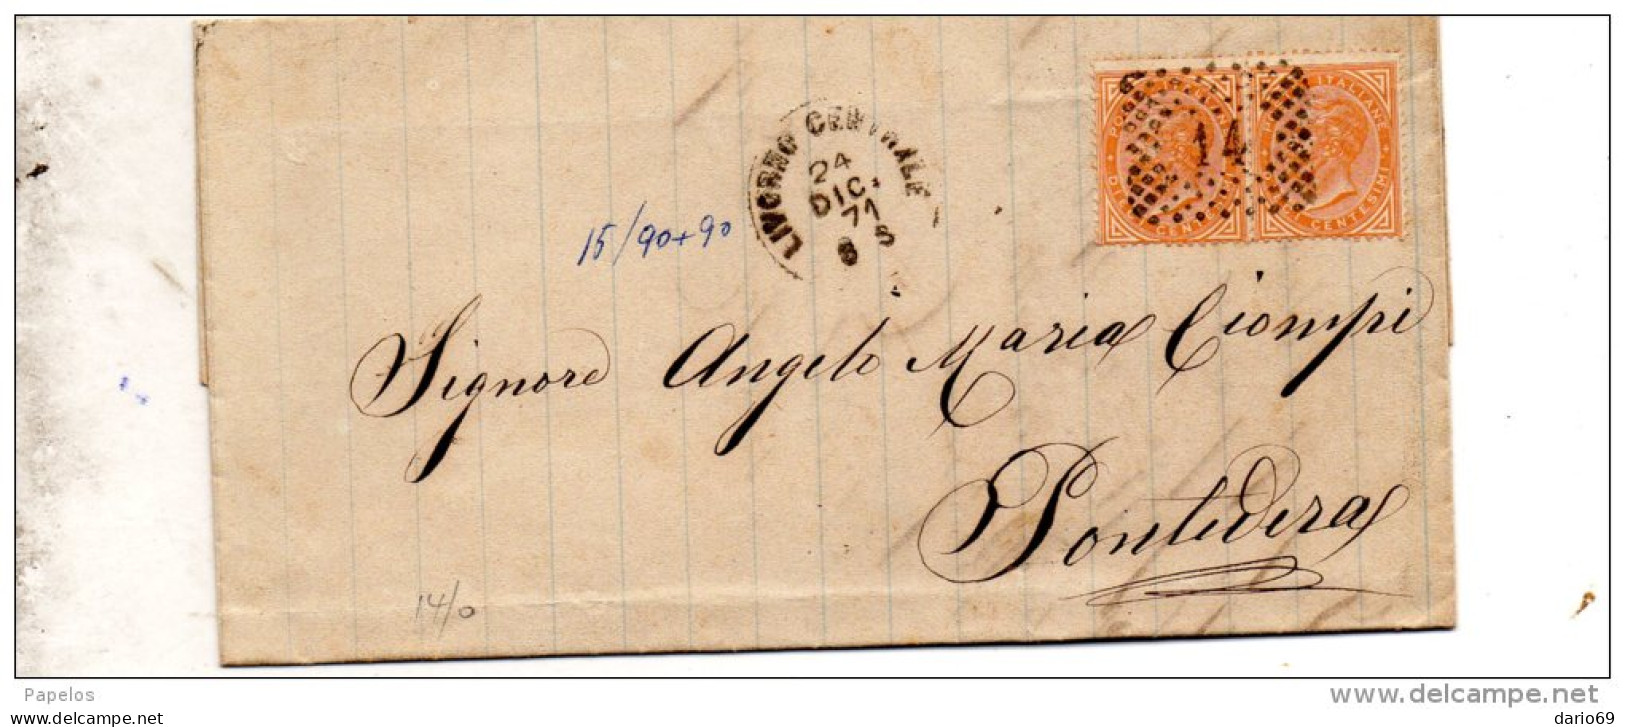 LIVORNO CENTRALE
24
DIC.
71
8 S
14
ITALIANE
CENTESIMI
15/90+90
Signore Angelo Maria Ciompi
Pontedera
14/0
Papelos
www.delcampe.net
www.delcampe.net
dario69